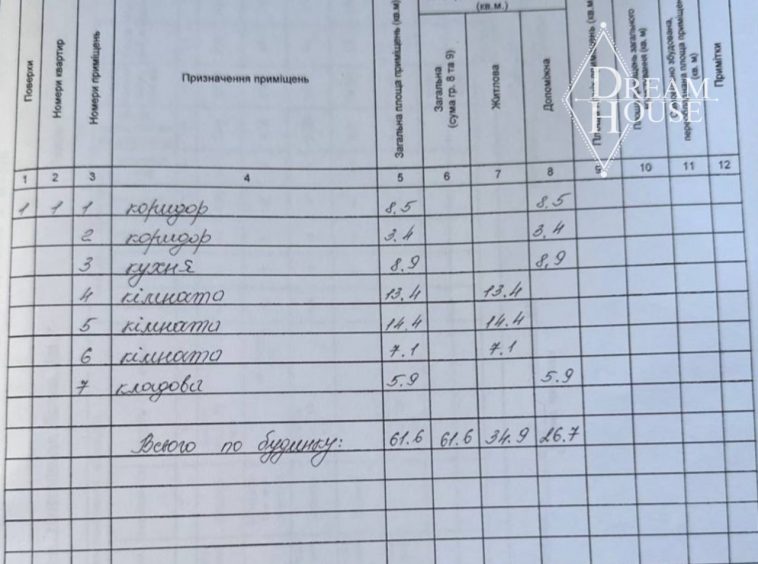 (кв.м.)
Поверхи
Номери квартир
Номери приміщень
Призначення приміщень
Загальна площа приміщень (кв.м)
Загальна (сума гр. 8 та 9)
Житлова
Допоміжна
приміщень (кв.м
загального
(кв. м)
збудована,
площа приміщень
(кв. м)
Примітки
DREAM
HOUSE
1 2 3 4 5 6 7 8 9 10 11 12
1 1 1 коридор 8,5 8,5
2 коридор 3.4 3,4
3 кухня 8.9 8,9
4 кімната 13.4 13.4
5 кімната 14.4 14.4
6 кімната 7.1 7.1
7 кладова 5.9 5.9
Всього по будинку: 61.6 61.6 34.9 26.7